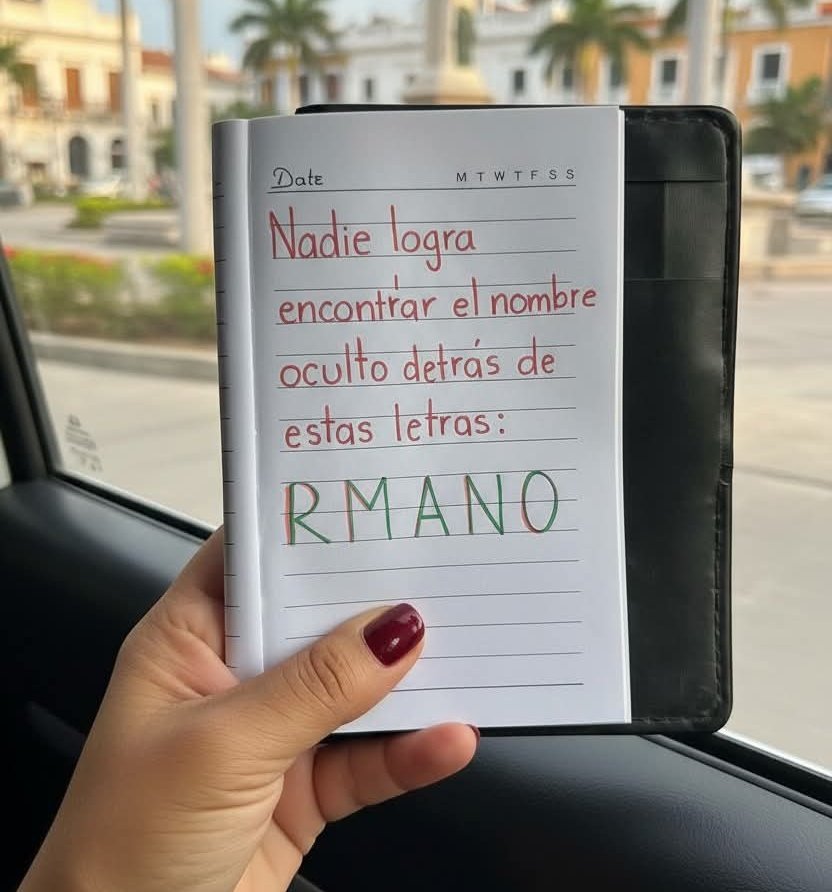 Date M T W T F S S
Nadie logra
encontrar el nombre
oculto detrás de
estas letras:
RMANO